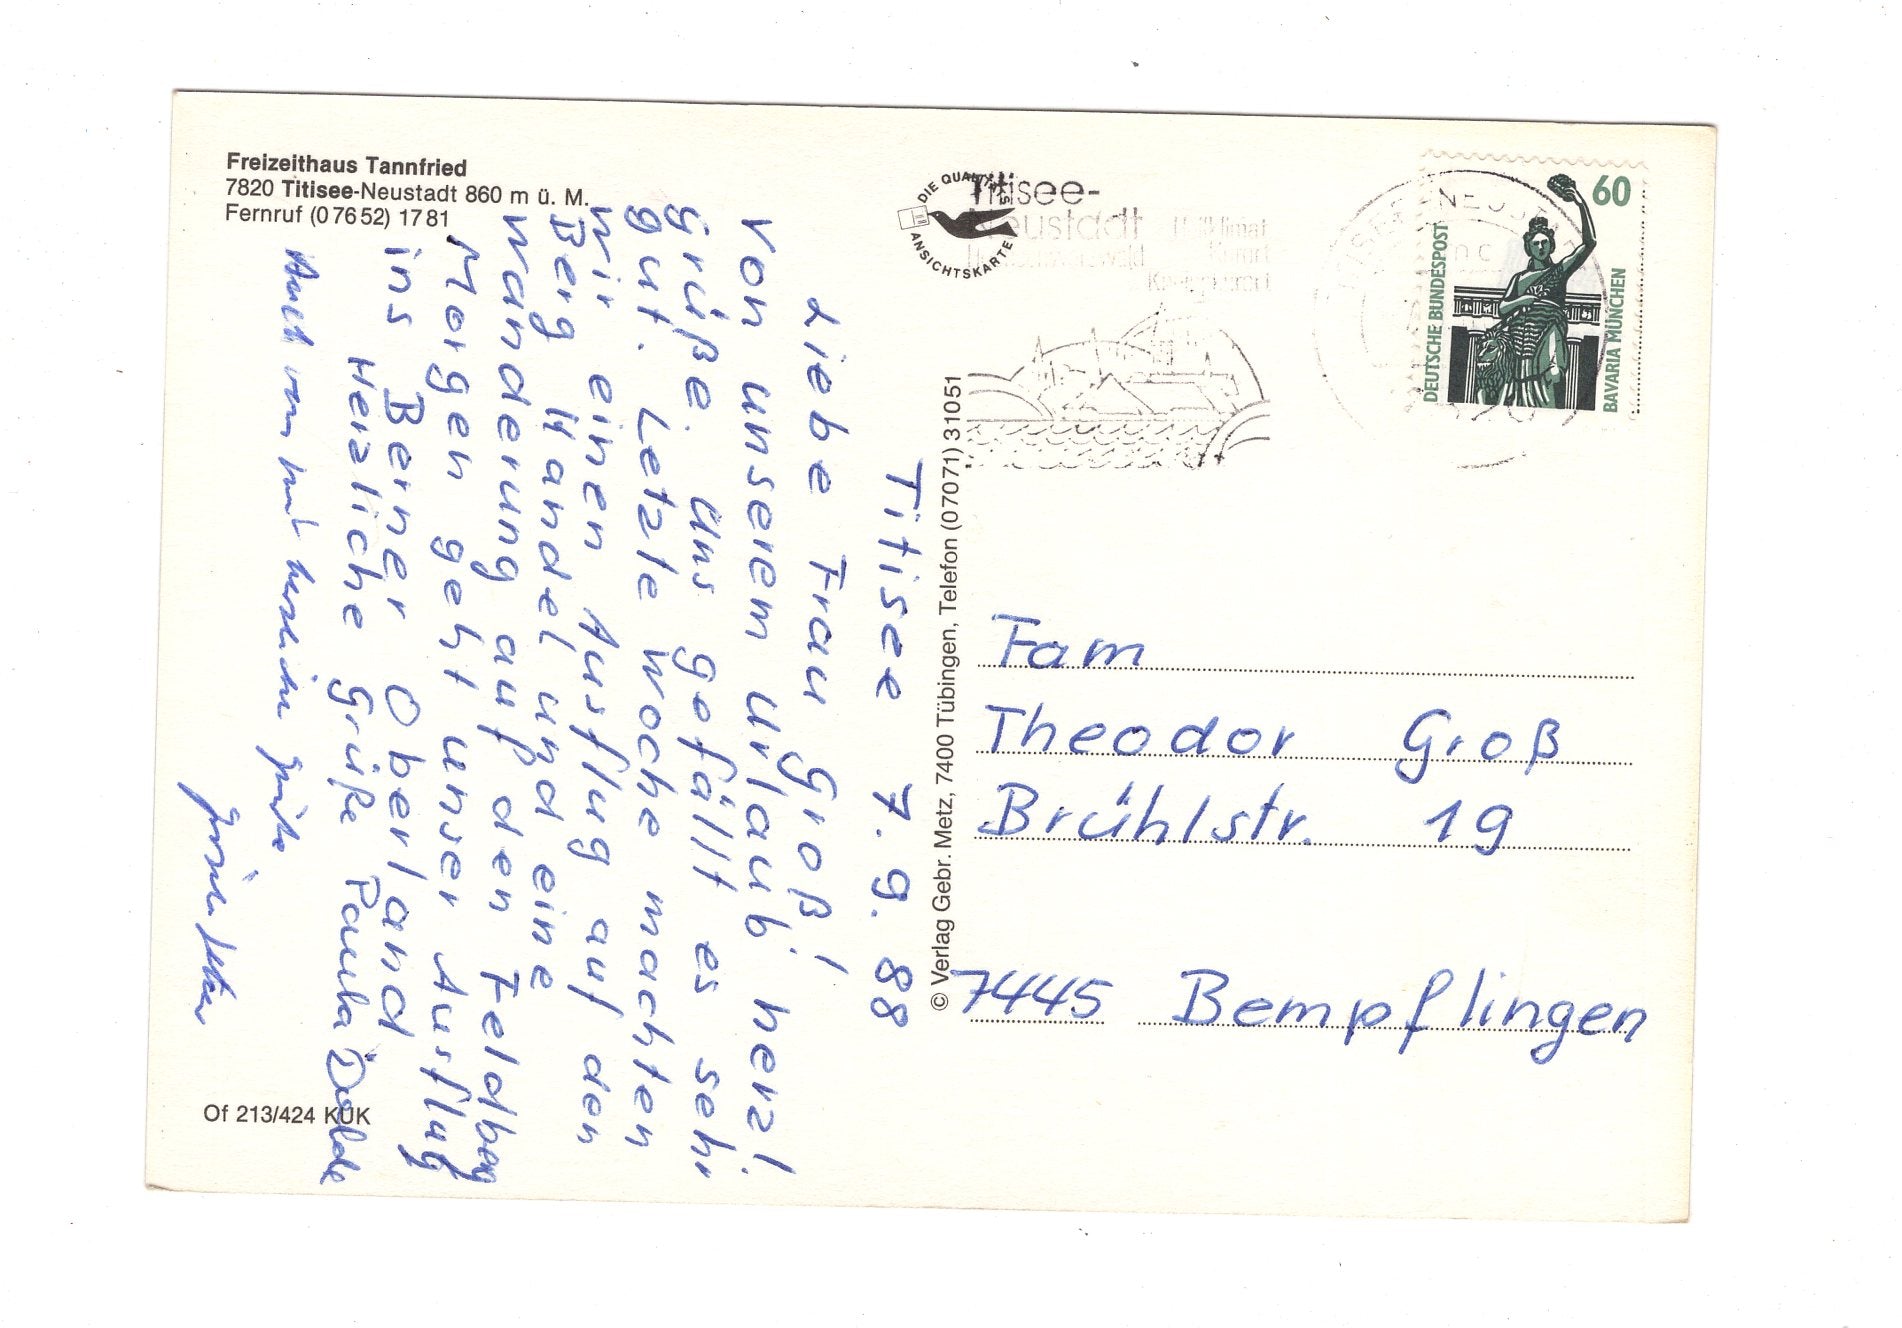 Freizeithaus Tannfried
7820 Titisee-Neustadt 860 m ü. M.
Fernruf (07652) 1781
Titisee 7.9.88
Liebe Frau Groß!
Von unserem Urlaub herzl.
Grüße. Uns gefällt es sehr
gut. Letzte Woche machten
wir einen Ausflug auf den
Berg Kandel und eine
Wanderung auf den Feldberg
Morgen geht unser Ausflug
ins Berner Oberland
Herzliche Grüße Paula Dolde
Auch von mir herzliche Grüße
Of 213/424 KUK
© Verlag Gebr. Metz, 7400 Tübingen, Telefon (07071) 31051
DIE QUALITÄTS
ANSICHTSKARTE
Titisee-
Neustadt
60
DEUTSCHE BUNDESPOST
BAVARIA MÜNCHEN
Fam
Theodor Groß
Brühlstr. 19
7445 Bempflingen